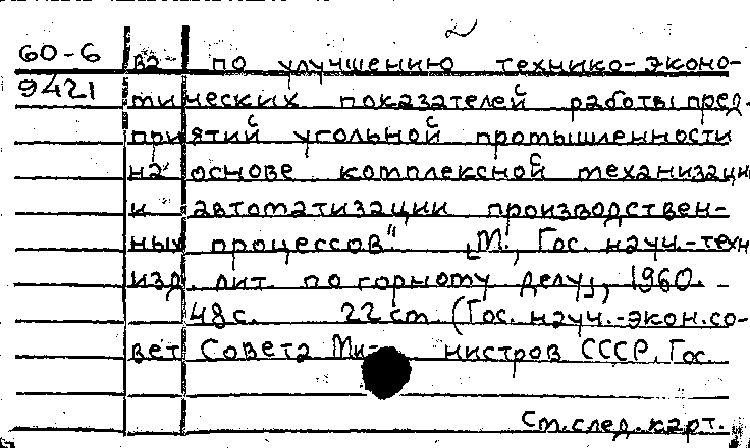 2
60-6 ва по улучшению технико-эконо-
9421 мических показателей работы пред-
приятий угольной промышленности
на основе комплексной механизаци
и автоматизации производствен-
ных процессов" [М., Гос. науч.-техн
изд. лит. по горному делу], 1960.
48 с. 22 cm (Гос. науч.-экон. со-
вет Совета Ми- нистров СССР. Гос.
См. след. карт.